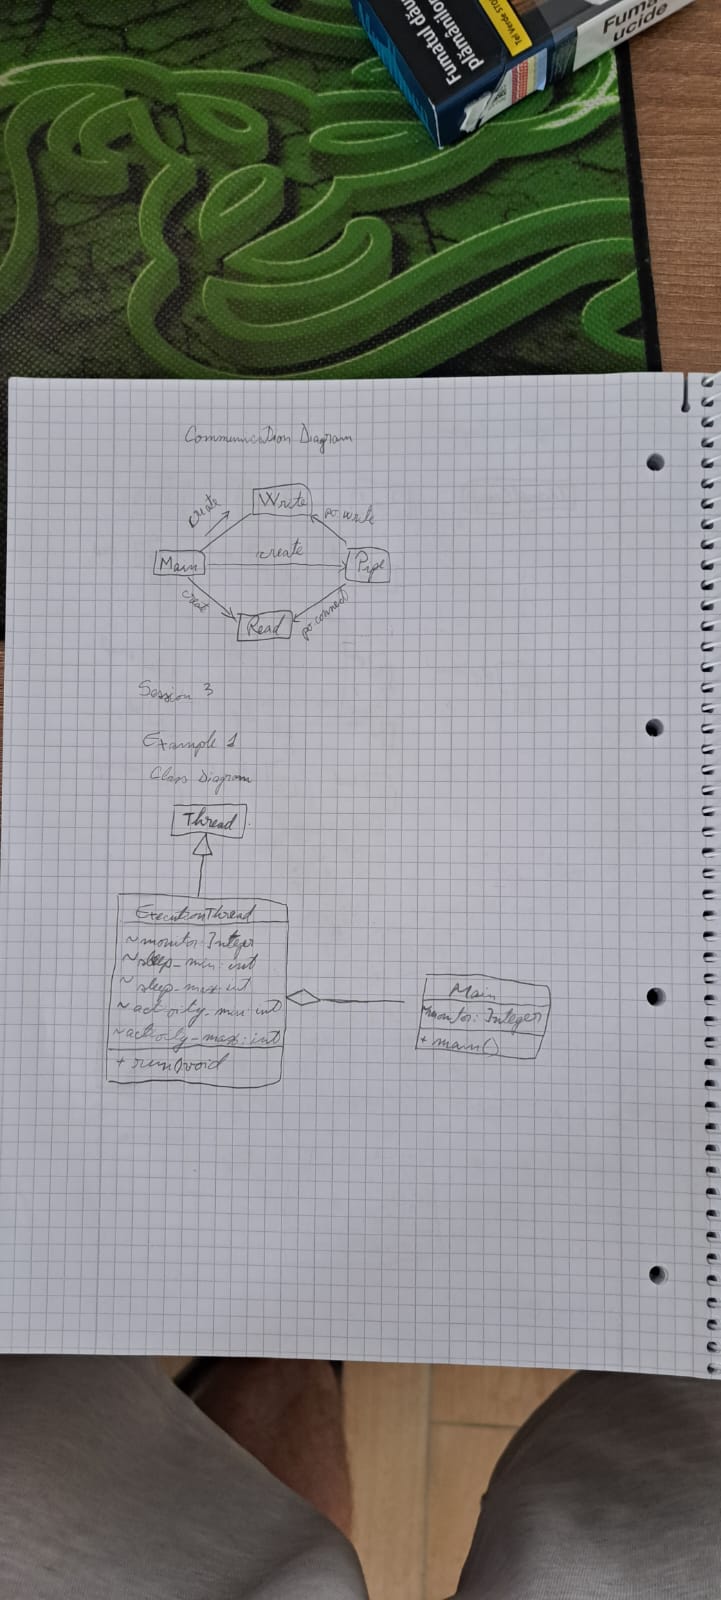 Fumatul dău
plămânilor
Tel Verde STO
Fuma
ucide
Communication Diagram
create
Write
po.write
Main
create
Pipe
create
Read
po.connect
Session 3
Example 1
Class Diagram
Thread
ExecutionThread
~monitor: Integer
~sleep_min: int
~sleep_max: int
~activity_min: int
~activity_max: int
+ run():void
Main
~monitor: Integer
+ main()